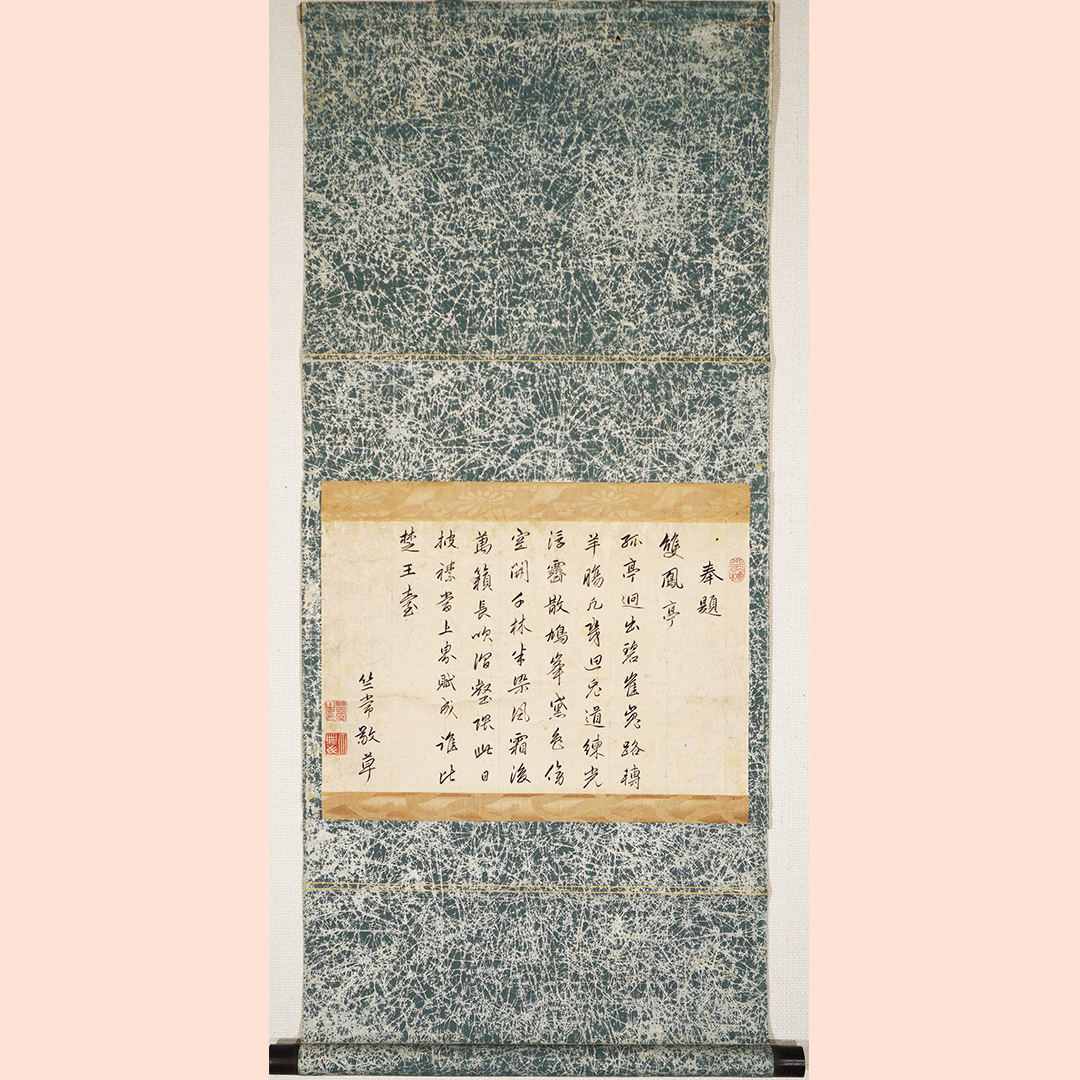 奉題
雙鳳亭
孤亭迥出碧崔嵬路轉
羊腸凡幾回兔道練光
浮霽散鳩峯黛色傍
空開千林半染風霜後
萬籟長吹澗壑隈此日
披襟當上賦成誰比
楚王臺
竺常敬草